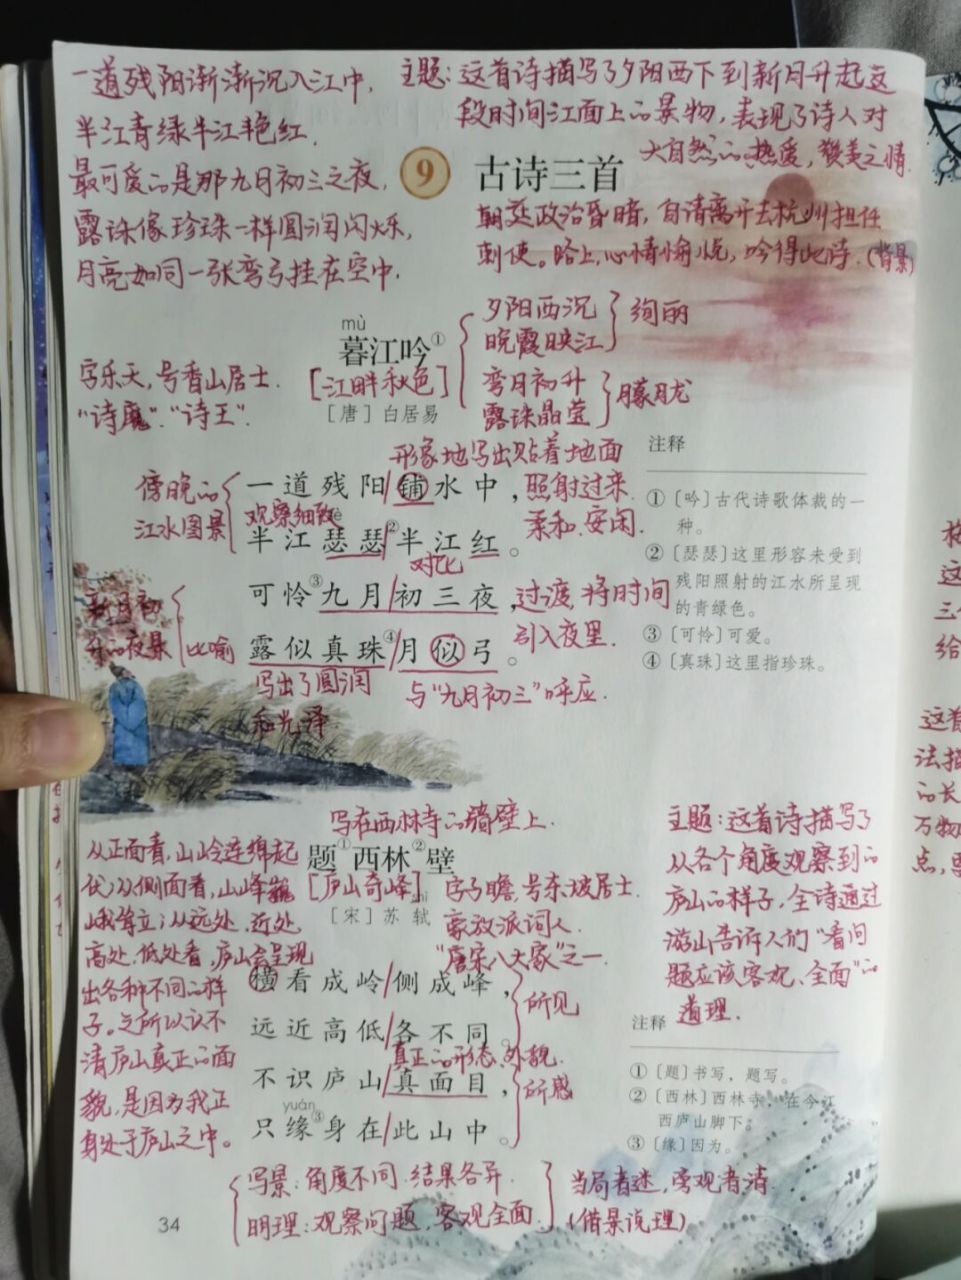 一道残阳渐渐沉入江中,
半江青绿半江艳红.
最可爱的是那九月初三之夜,
露珠像珍珠一样圆润闪烁,
月亮如同一张弯弓挂在空中.
主题:这首诗描写了夕阳西下到新月升起这
段时间江面上的景物,表现了诗人对
大自然的热爱,赞美之情.
9 古诗三首
朝廷政治昏暗,自请离开去杭州担任
刺使。路上,心情愉悦,吟得此诗.(背景)
mù
暮江吟①
[江畔秋色]
[唐] 白居易
夕阳西沉
晚霞映江
绚丽
弯月初升
露珠晶莹
朦胧
字乐天,号香山居士.
"诗魔"."诗王".
形象地写出贴着地面
照射过来.
柔和、安闲.
傍晚的
江水图景
一道残阳/铺水中,
观察细致
半江瑟瑟②/半江红。
对比
可怜③九月/初三夜,
过渡,将时间
引入夜里.
新月初
升的夜景
比喻
露似真珠④/月似弓。
写出了圆润
和光泽
与"九月初三"呼应.
注释
①〔吟〕古代诗歌体裁的一
种。
②〔瑟瑟〕这里形容未受到
残阳照射的江水所呈现
的青绿色。
③〔可怜〕可爱。
④〔真珠〕这里指珍珠。
写在西林寺的墙壁上.
题①西林②壁
[庐山奇峰]
shì
[宋] 苏轼
字子瞻,号东坡居士.
豪放派词人.
"唐宋八大家"之一.
从正面看,山岭连绵起
伏;从侧面看,山峰巍
峨耸立;从远处、近处
高处、低处看,庐山会呈现
出各种不同的样
子。之所以认不
清庐山真正的面
貌,是因为我正
身处于庐山之中。
横看成岭/侧成峰,
远近高低/各不同。
所见
真正的形态、外貌.
不识庐山/真面目,
yuán
只缘③身在/此山中。
所感
主题:这首诗描写了
从各个角度观察到的
庐山的样子,全诗通过
游山告诉人们"看问
题应该客观、全面"的
道理.
注释
①〔题〕书写,题写。
②〔西林〕西林寺,在今江
西庐山脚下。
③〔缘〕因为。
写景:角度不同.结果各异.
明理:观察问题,客观全面.
当局者迷,旁观者清
(借景说理)
34